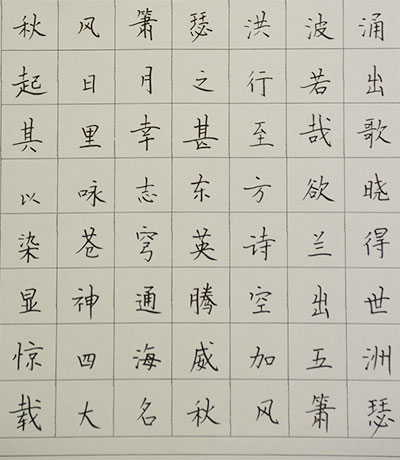 秋风箫瑟洪波涌
起日月之行若出
其里幸甚至哉歌
以咏志东方欲晓
染苍穹英诗兰得
显神通腾空出世
惊四海威加五洲
载大名秋风箫瑟